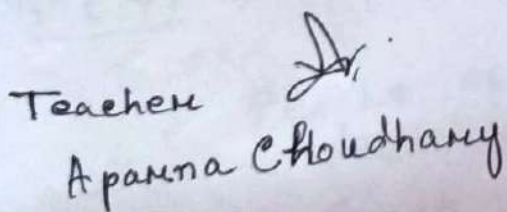 Teacher
Aparna Choudhary